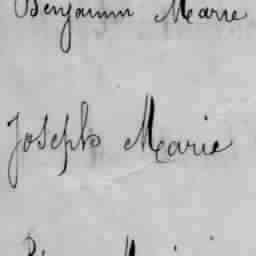 Benjamin Marie
Joseph Marie